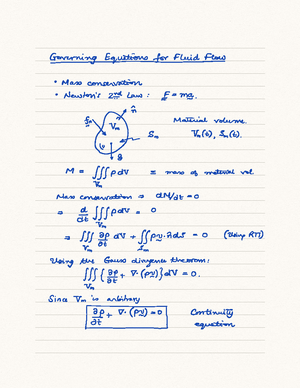 Governing Equations for Fluid Flow
• Mass conservation
• Newton's 2nd Law : F = ma.
n̂
Material volume.
Vm
Vm(t), Sm(t).
Sm
g
M = ∭Vm ρ dV = mass of material vol
Mass conservation ⇒ dM/dt = 0
⇒ d/dt ∭Vm ρ dV = 0
⇒ ∭Vm ∂ρ/∂t dV + ∬Sm ρv·n̂ dS = 0 (Using RTT)
Using the Gauss divergence theorem:
∭Vm {∂ρ/∂t + ∇·(ρv)} dV = 0.
Since Vm is arbitrary
∂ρ/∂t + ∇·(ρv) = 0 Continuity
equation